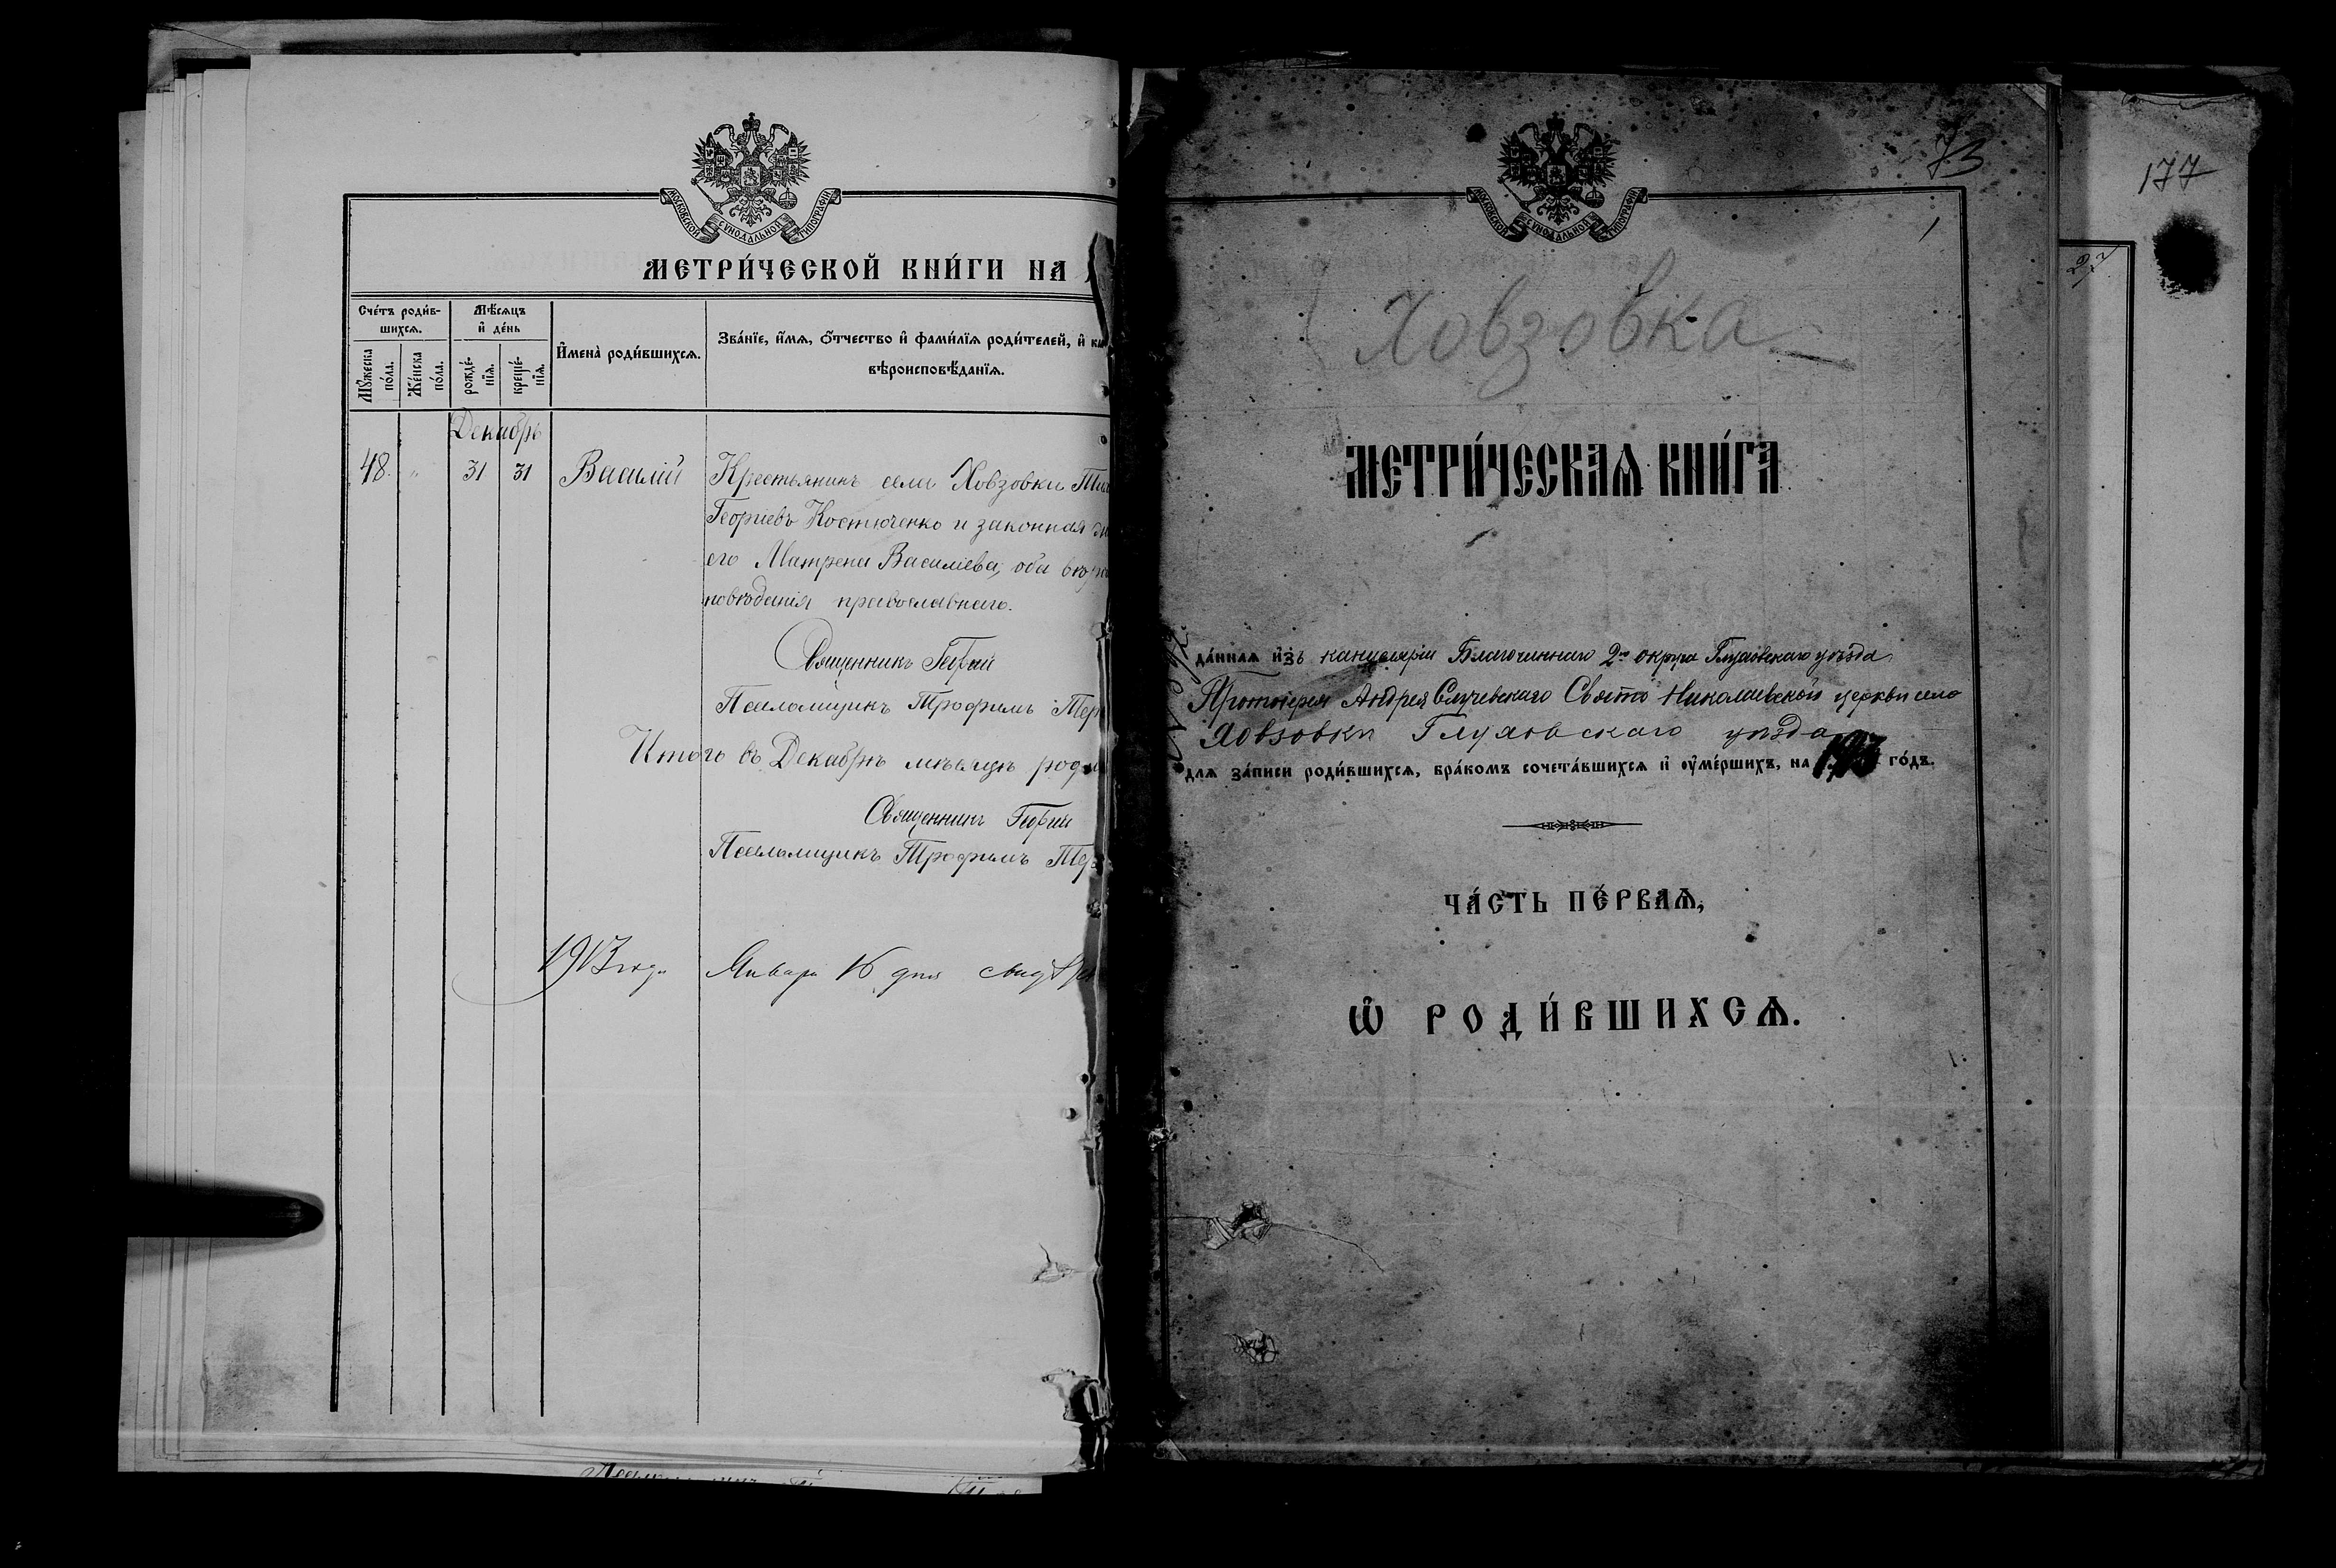 МОСКОВСКОЙ СѴНОДАЛЬНОЙ ТИПОГРАФІИ
МЕТРИ́ЧЕСКОЙ КНИ́ГИ НА
Сче́тъ роди́в-
шихсѧ.
Мѣ́сѧцъ
и҆ де́нь
И҆мена̀ роди́вшихсѧ.
Зва́нїе, и҆́мѧ, ѻ҆́тчество и҆ фами́лїѧ роди́телей, и҆
вѣроисповѣ́данїѧ.
Мꙋ́жеска
по́ла.
Же́нска
по́ла.
рожде́-
нїѧ.
креще́-
нїѧ.
Декабрь
48. " 31 31 Василій Крестьянинъ села Ховзовки
Георгіевъ Костюченко и законная
его Матрена Василіева, оба
повѣданія православнаго.
Священникъ Георгій
Псаломщикъ Трофимъ
Итого въ Декабрѣ мѣсяцѣ
Священникъ Георгій
Псаломщикъ Трофимъ
1913 года Января 16 дня
73
МОСКОВСКОЙ СѴНОДАЛЬНОЙ ТИПОГРАФІИ
1
Ховзовка
МЕТРИ́ЧЕСКАѦ КНИ́ГА
да́ннаѧ и҆зъ канцеляріи Благочиннаго 2го округа Глуховскаго уѣзда
Протоіерея Андрея Случевскаго Свято Николаевской церкви села
Ховзовки Глуховскаго уѣзда
длѧ за́писи роди́вшихсѧ, бра́комъ сочета́вшихсѧ и҆ ᲂу҆ме́ршихъ, на 1913 го́дъ.
ЧА́СТЬ ПЕ́РВАѦ,
Ѡ҆ РОДИ́ВШИХСѦ.
177
27